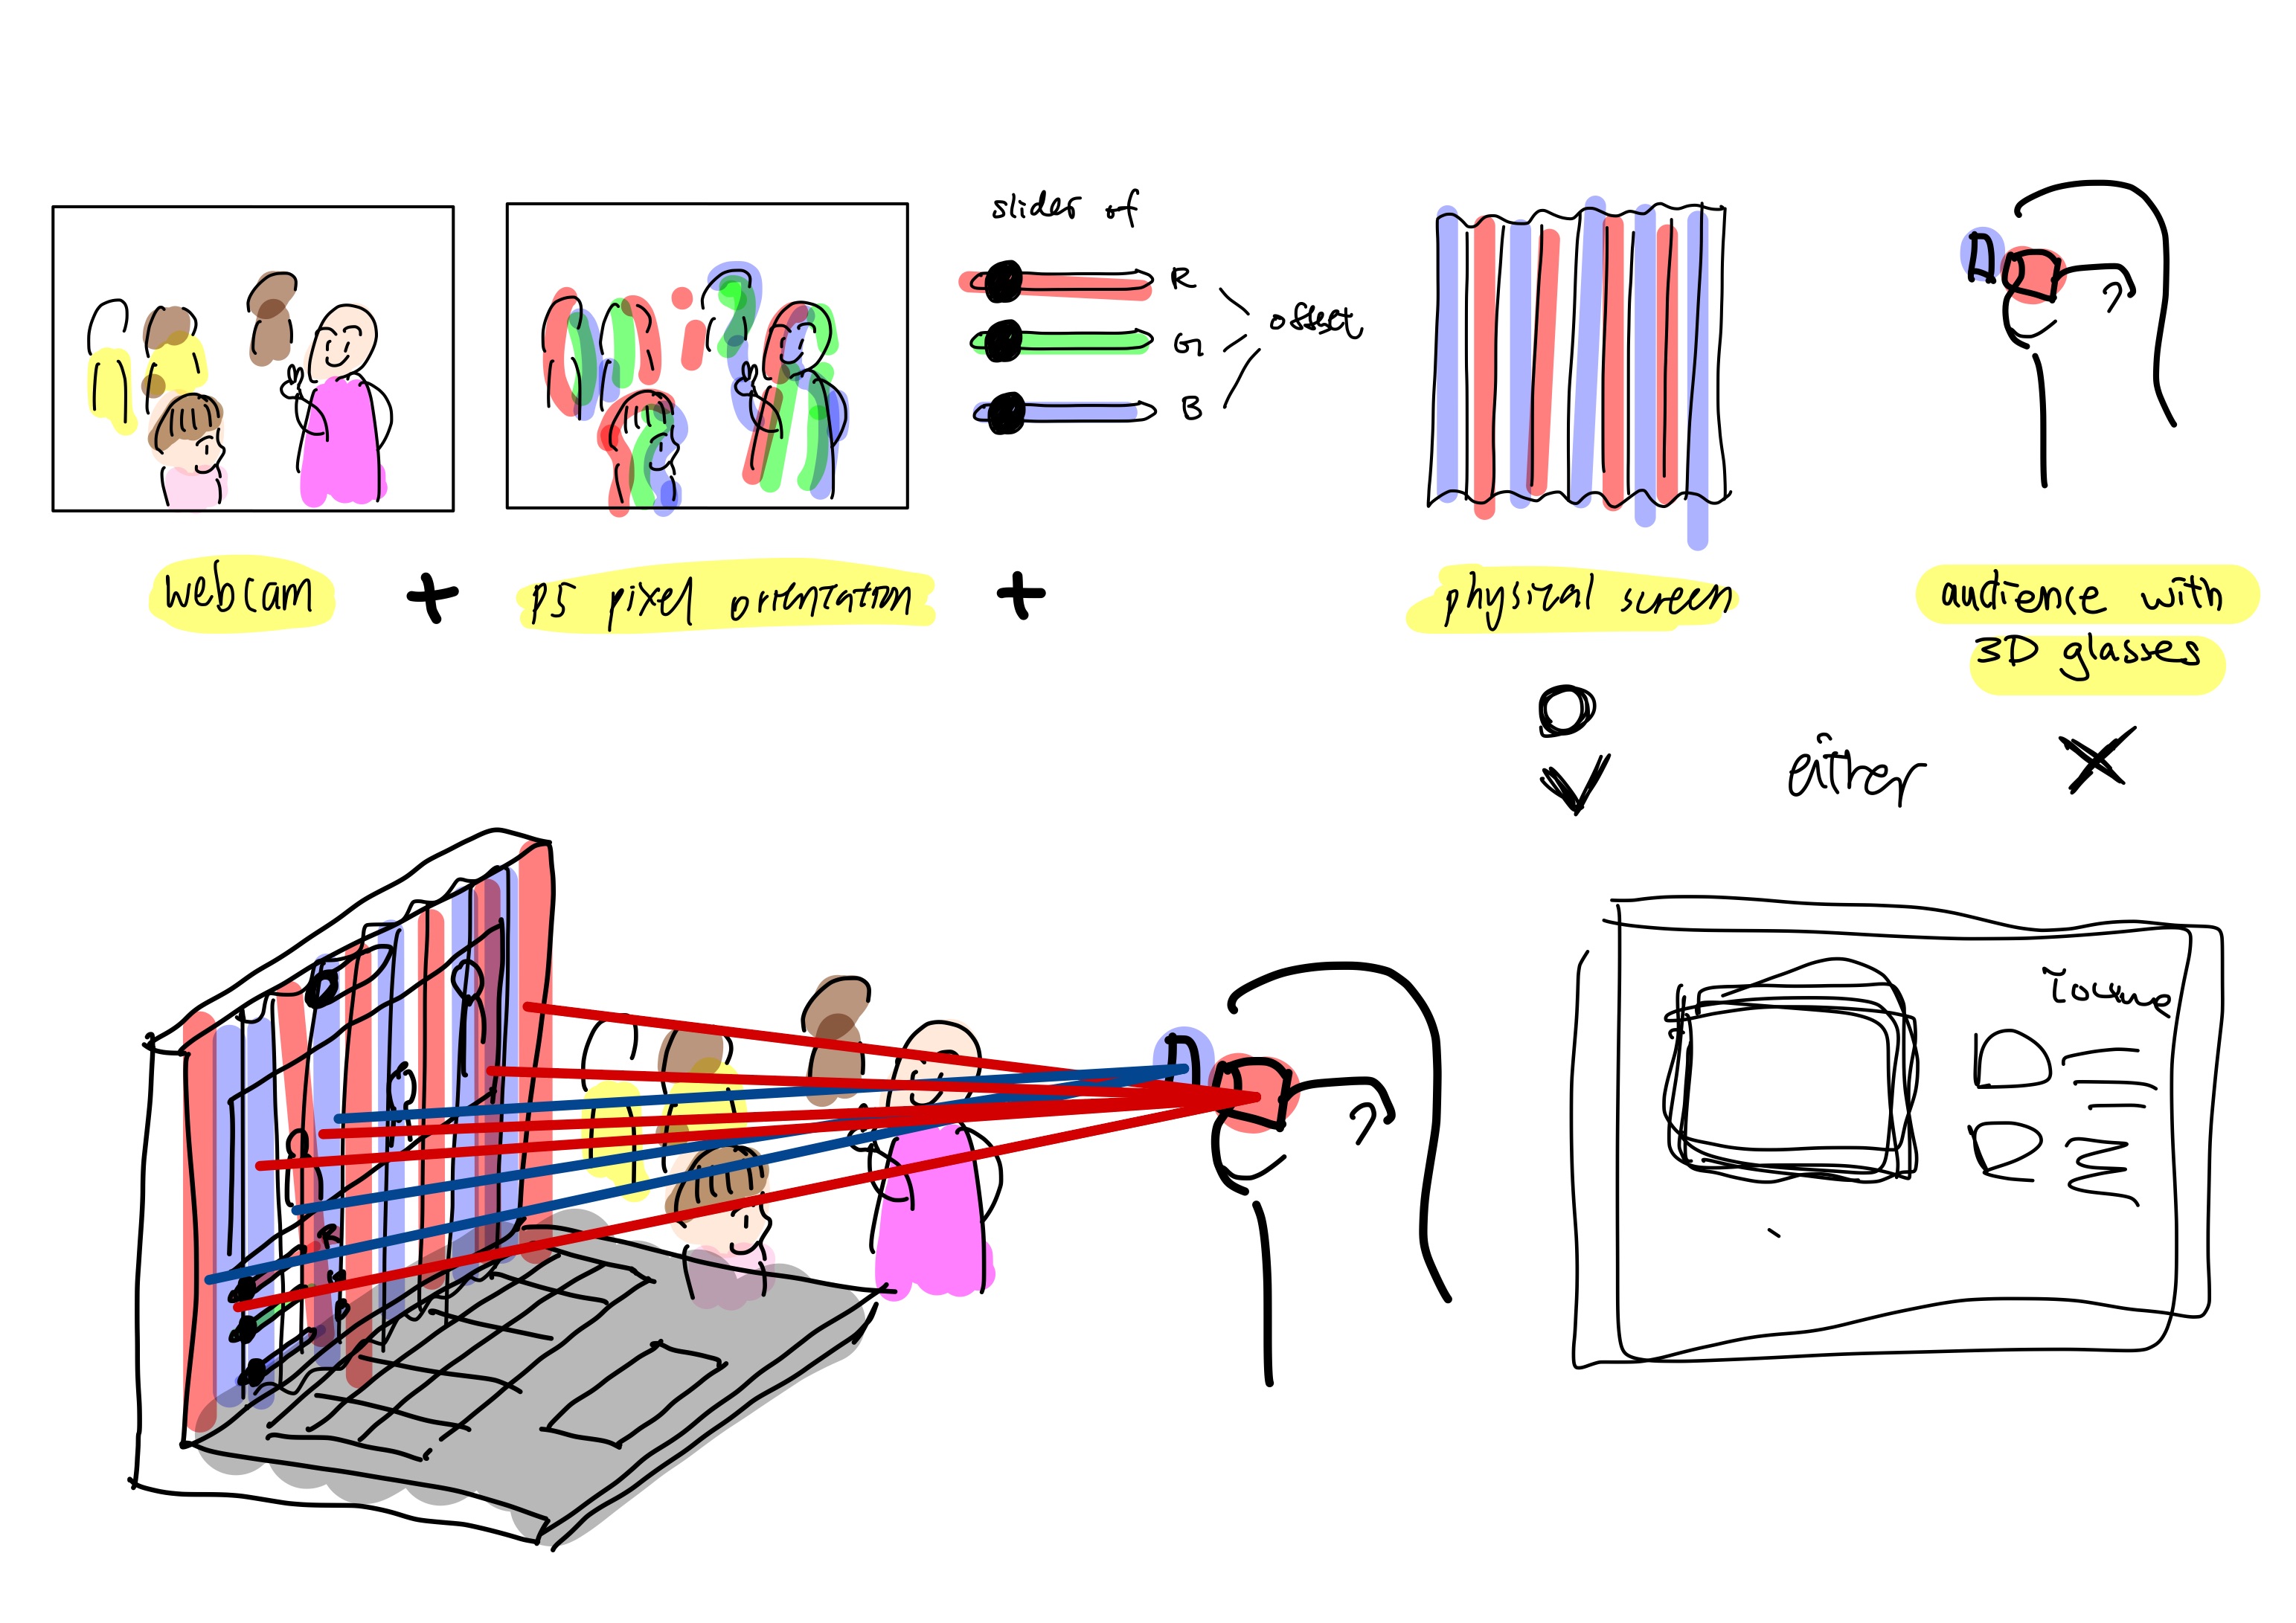 slider of
R
G
B
offset
webcam
+
p5 pixel orientation
+
physical screen
audience with
3D glasses
either
R
G
B